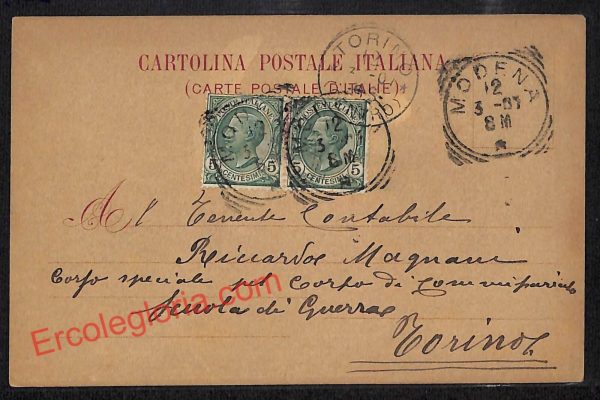 CARTOLINA POSTALE ITALIANA
(CARTE POSTALE D'ITALIE)
TORINO
MODENA
12
3-07
8M
POSTE ITALIANE
5 CENTESIMI 5
POSTE ITALIANE
5 CENTESIMI 5
12
3
8M
Al Tenente Contabile
Riccardo Magnani
Corso speciale pel Corpo di Commissariato
Scuola di Guerra
Torino
Ercolegloria.com